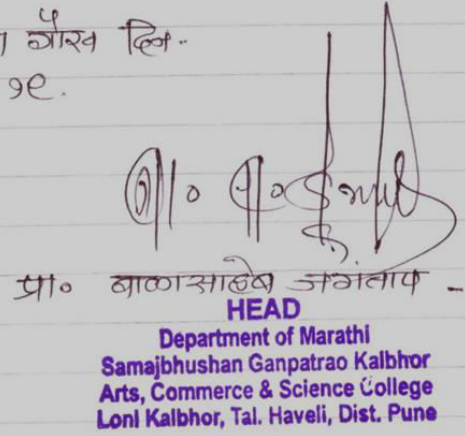 गौरव दिन-
१९.
प्रा० बाळासाहेब जगताप -
HEAD
Department of Marathi
Samajbhushan Ganpatrao Kalbhor
Arts, Commerce & Science College
Loni Kalbhor, Tal. Haveli, Dist. Pune